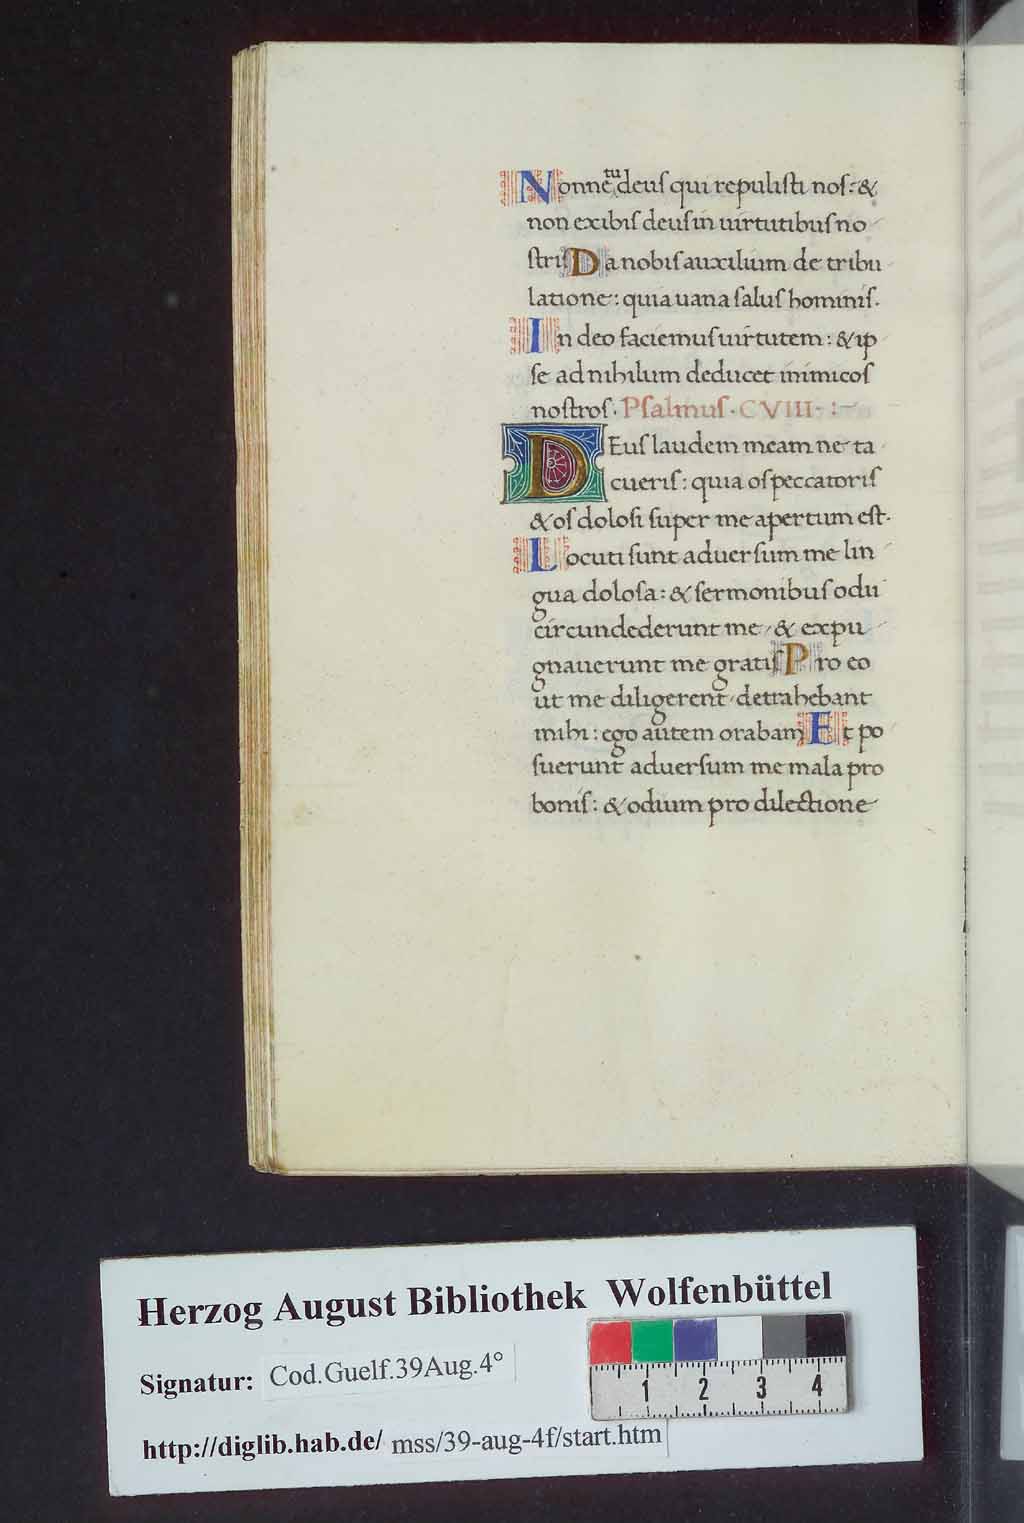 Nonne tu deus qui repulisti nos: &
non exibis deus in uirtutibus no
stris Da nobis auxilium de tribu
latione: quia uana salus hominis.
In deo faciemus uirtutem: & ip
se ad nihilum deducet inimicos
nostros. Psalmus. CVIII.
DEus laudem meam ne ta
cueris: quia os peccatoris
& os dolosi super me apertum est.
Locuti sunt aduersum me lin
gua dolosa: & sermonibus odii
circundederunt me, & expu
gnauerunt me gratis Pro eo
ut me diligerent, detrahebant
mihi: ego autem orabam Et po
suerunt aduersum me mala pro
bonis: & odium pro dilectione
Herzog August Bibliothek Wolfenbüttel
Signatur: Cod.Guelf.39Aug.4°
1 2 3 4
http://diglib.hab.de/ mss/39-aug-4f/start.htm